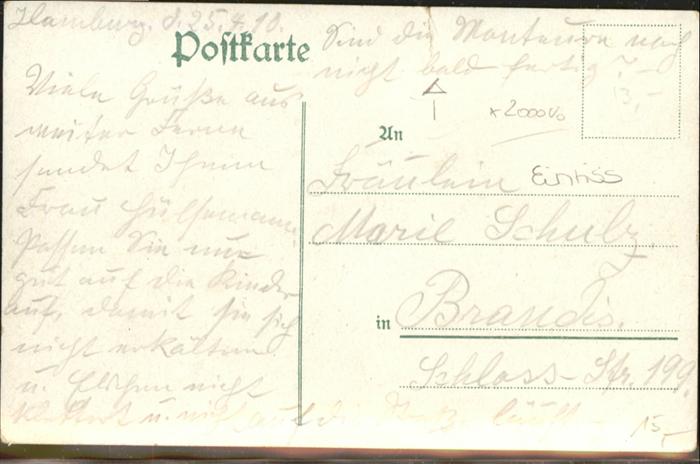 Hamburg, d. 25.4.10.
Postkarte
Sind die Monteure noch
nicht bald fertig? –
Viele Grüße aus
weiter Ferne
sendet Ihnen
Frau Hülsemann.
Passen Sie nur
gut auf die Kinder
auf, damit sie sich
nicht erkälten
u. nicht
u. nicht auf die
13,-
x2000Vo
An
Fräulein
Einriss
Marie Schulz.
in Brandis.
Schloss-Str. 199.
15,-